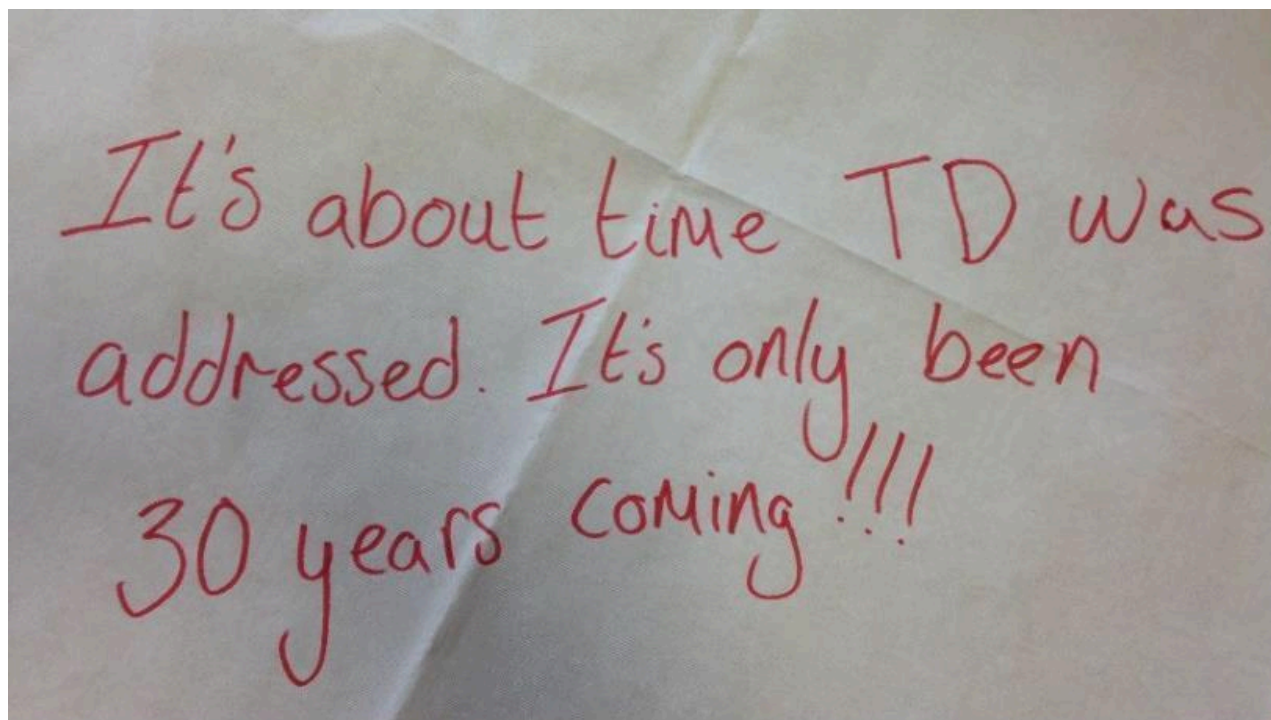 It's about time TD was
addressed. It's only been
30 years coming!!!